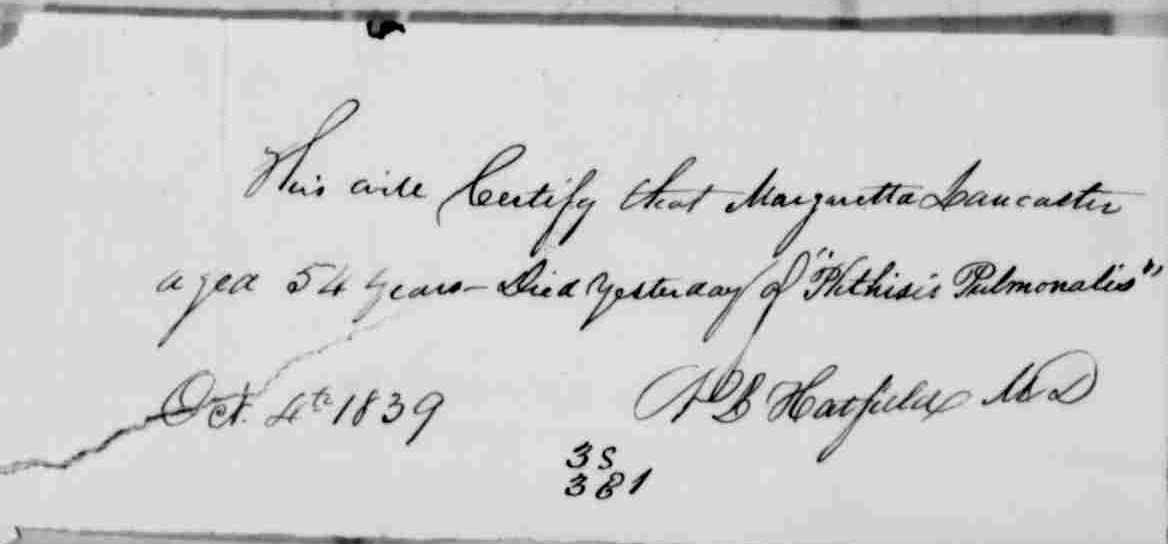 This will Certify that Margaretta Lancaster
aged 54 years – Died Yesterday of "Phthisis Pulmonalis"
Oct. 4th 1839
N B Hatfield M D
3 S
3 B 1